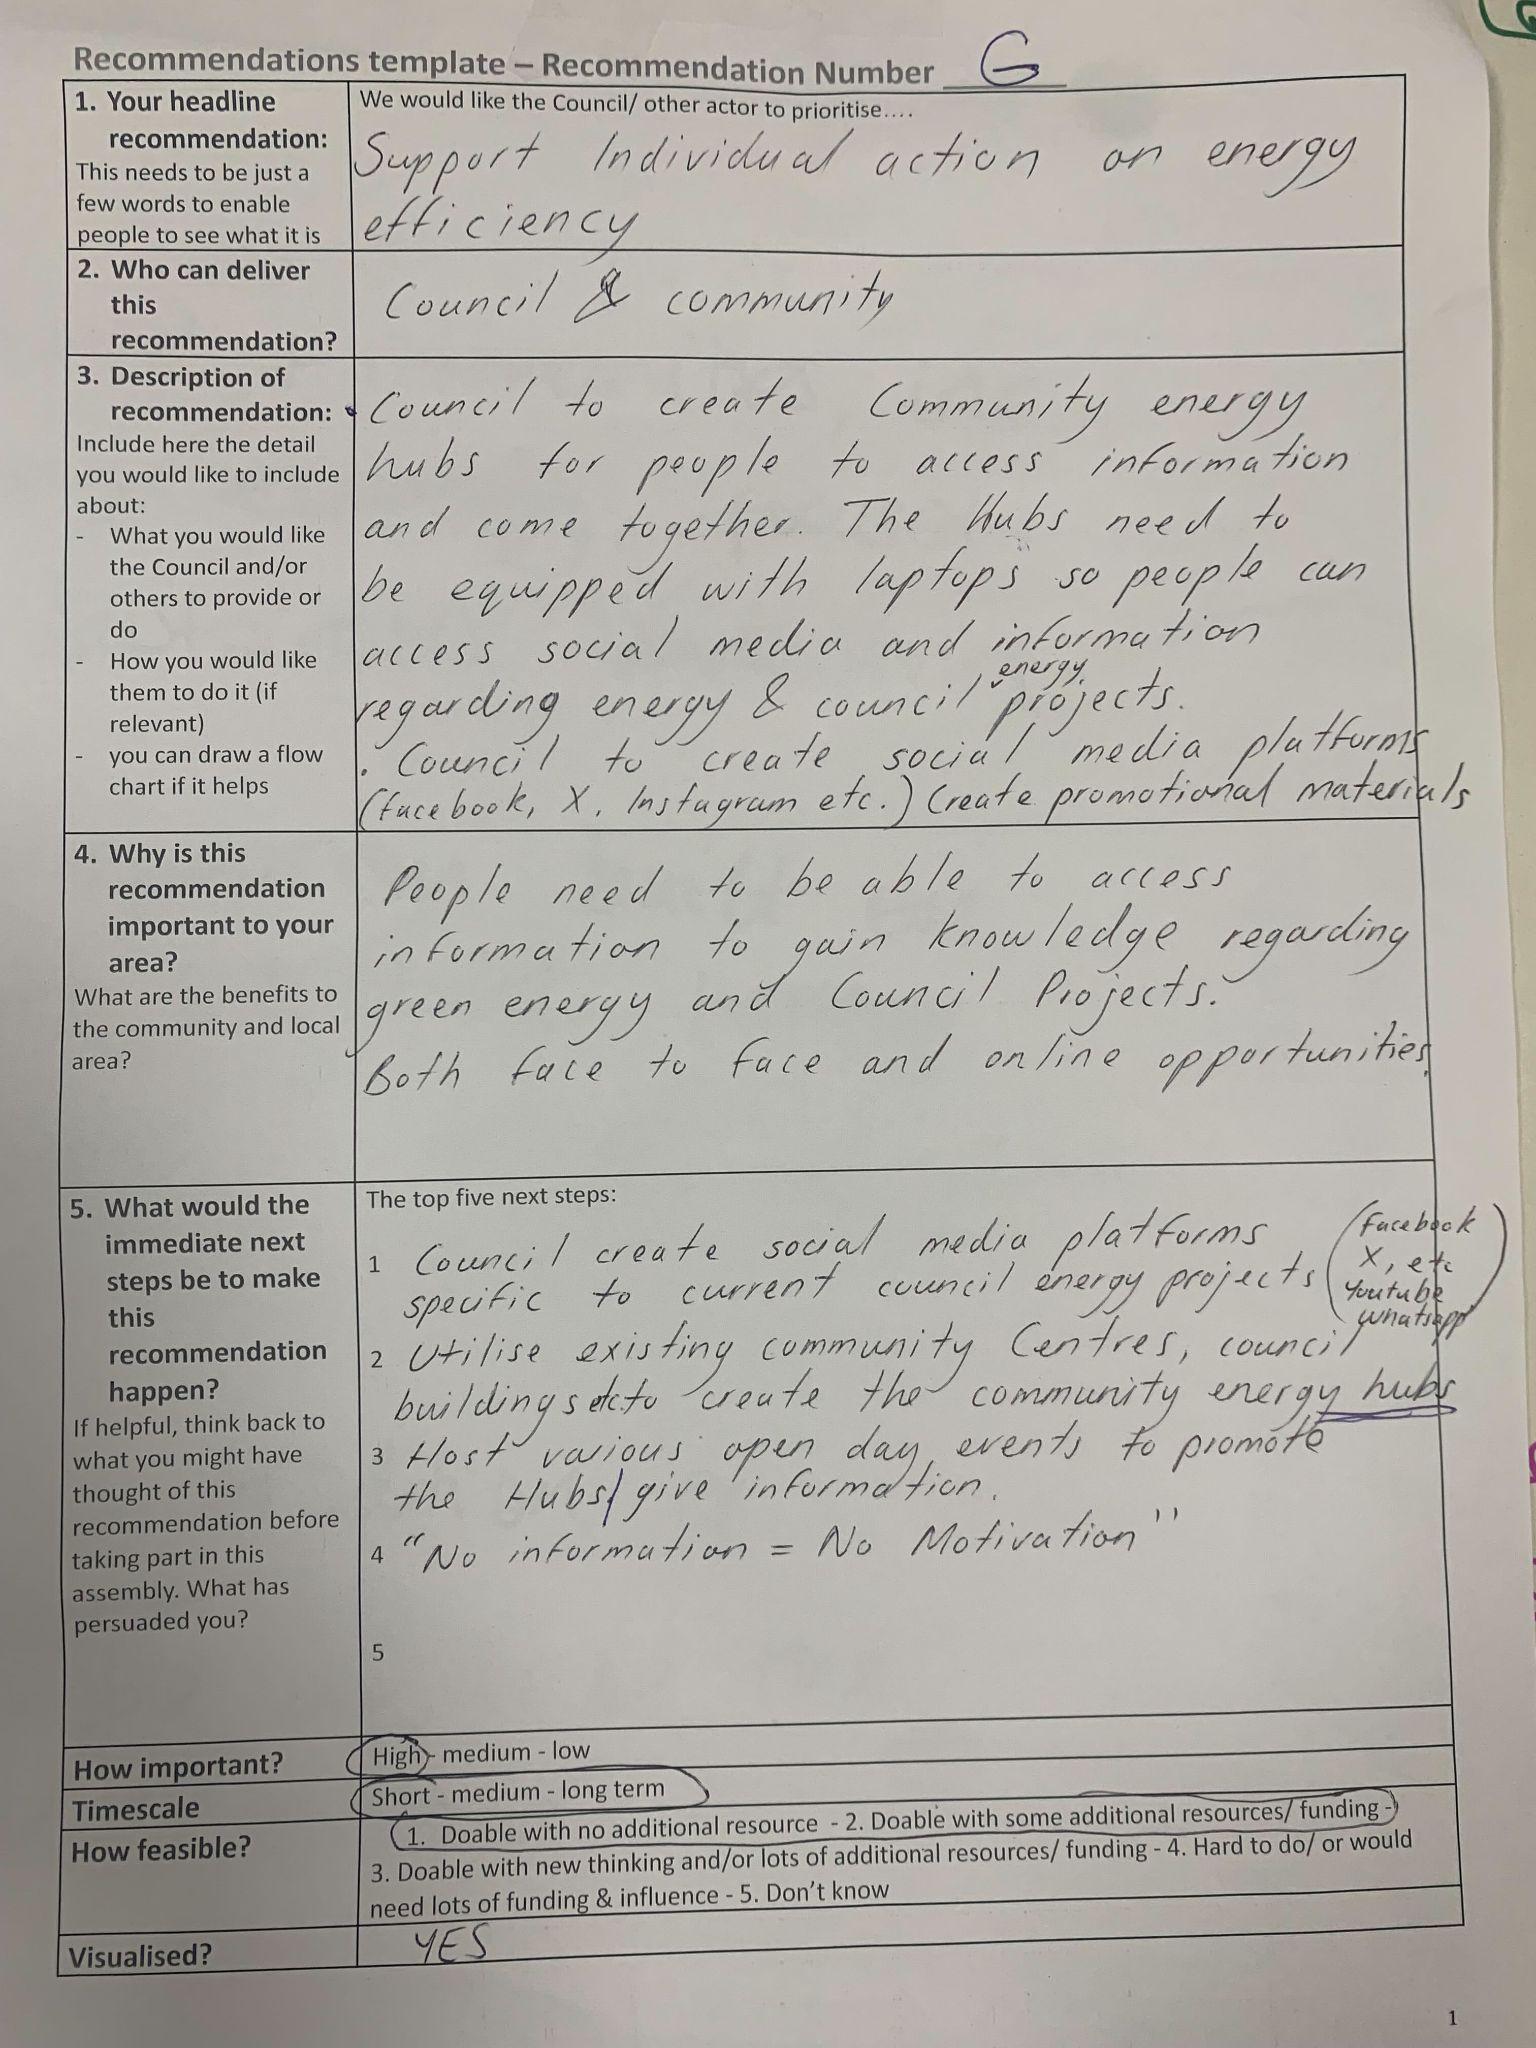 Recommendations template – Recommendation Number G
1. Your headline
recommendation:
This needs to be just a
few words to enable
people to see what it is
We would like the Council/ other actor to prioritise....
Support Individual action on energy
efficiency
2. Who can deliver
this
recommendation?
Council & community
3. Description of
recommendation:
Include here the detail
you would like to include
about:
- What you would like
the Council and/or
others to provide or
do
- How you would like
them to do it (if
relevant)
- you can draw a flow
chart if it helps
• Council to create Community energy
hubs for people to access information
and come together. The Hubs need to
be equipped with laptops so people can
access social media and information
regarding energy & council energy projects.
• Council to create social media platforms
(facebook, X, Instagram etc.) Create promotional materials
4. Why is this
recommendation
important to your
area?
What are the benefits to
the community and local
area?
People need to be able to access
information to gain knowledge regarding
green energy and Council Projects.
Both face to face and online opportunities.
5. What would the
immediate next
steps be to make
this
recommendation
happen?
If helpful, think back to
what you might have
thought of this
recommendation before
taking part in this
assembly. What has
persuaded you?
The top five next steps:
1 Council create social media platforms
specific to current council energy projects (facebook
X, etc
Youtube
whatsapp)
2 Utilise existing community Centres, council
buildings etc. to create the community energy hubs
3 Host various open day events to promote
the Hubs/ give information.
4 "No information = No Motivation"
5
How important?
High - medium - low
Timescale
Short - medium - long term
How feasible?
1. Doable with no additional resource - 2. Doable with some additional resources/ funding -
3. Doable with new thinking and/or lots of additional resources/ funding - 4. Hard to do/ or would
need lots of funding & influence - 5. Don't know
Visualised?
YES
1